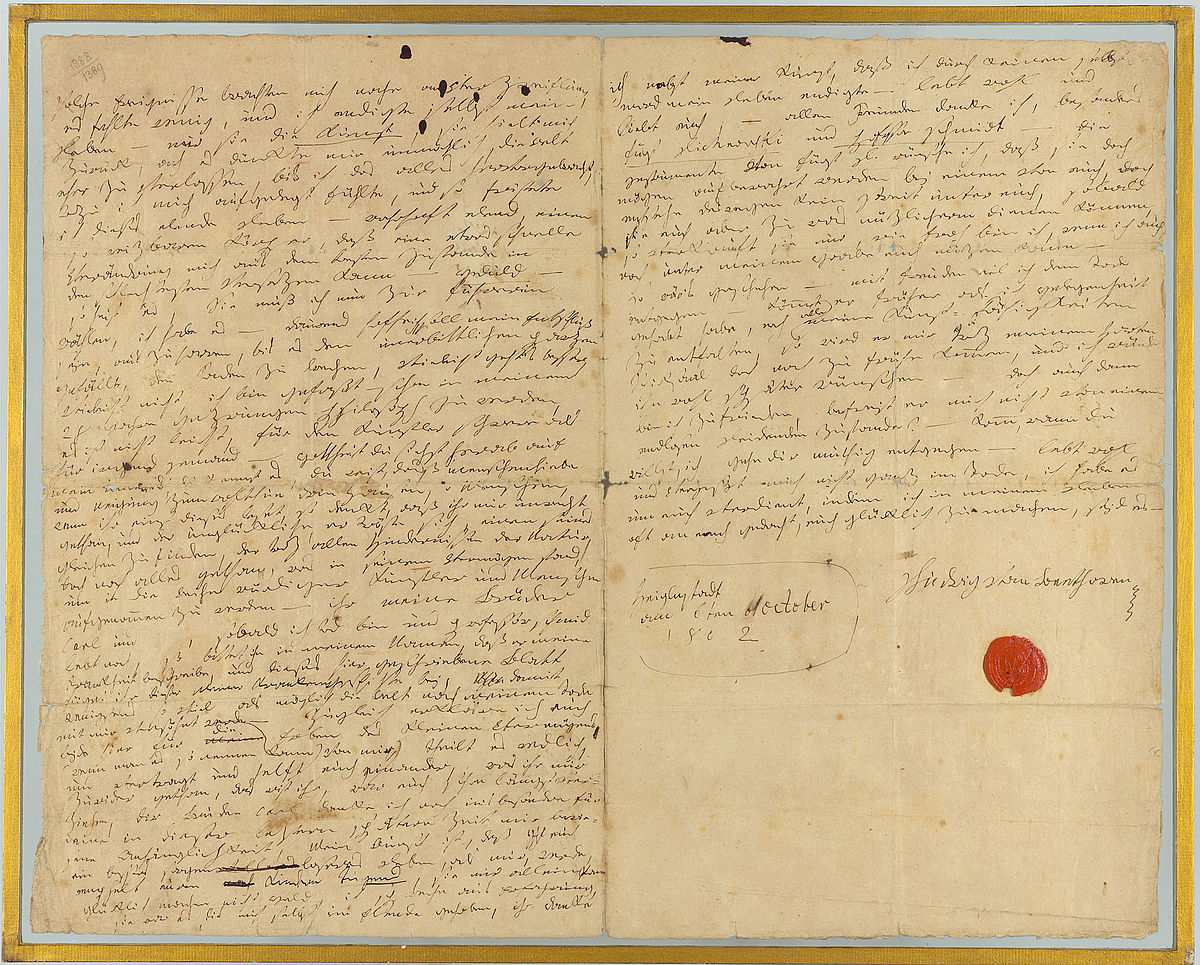 solche Ereignisse brachten mich nahe an Verzweiflung,
es fehlte wenig, und ich endigte selbst mein
Leben — nur sie die Kunst, sie hielt mich
zurück, ach es dünkte mir unmöglich, die Welt
eher zu verlassen, bis ich das alles hervorgebracht,
wozu ich mich aufgelegt fühlte, und so fristete
ich dieses elende Leben — wahrhaft elend, einen
so reizbaren Körper, daß eine etwas schnelle
Verändrung mich aus dem Besten Zustande in
den schlechtesten versezen kann — Geduld —
so heist es, Sie muß ich nun zur führerin
wählen, ich habe es — dauernd hoffe ich, soll mein Entschluß
seyn, auszuharren, bis es den unerbittlichen parzen
gefällt, den Faden zu brechen, vieleicht geht's besser,
vieleicht nicht, ich bin gefaßt — schon in meinem
28 jahre gezwungen Philosoph zu werden,
es ist nicht leicht, für den Künstler schwerer als
für irgend jemand — gottheit du siehst herab auf
mein inneres, du kennst es, du weist, daß menschenliebe
und neigung zum wohlthun drin Hausen, o Menschen,
wenn ihr einst dieses leset, so denkt, daß ihr mir unrecht
gethan, und der unglückliche, er tröste sich, einen seines
gleichen zu finden, der troz allen Hindernissen der Natur,
doch noch alles gethan, was in seinem Vermögen stand,
um in die Reihe würdiger Künstler und Menschen
aufgenommen zu werden — ihr meine Brüder
Carl und , sobald ich Tod bin und professor schmid
lebt noch, so bittet ihn in meinem Namen, daß er meine
Krankheit beschreibe, und dieses hier geschriebene Blatt
füget ihr dieser meiner Krankengeschichte bei, damit
wenigstens so viel als möglich die Welt nach meinem Tode
mit mir versöhnt werde — zugleich erkläre ich euch
beide hier für die Erben des kleinen Vermögens,
(wenn man es so nennen kann) von mir, theilt es redlich,
und vertragt und helft euch einander, was ihr mir
zuwider gethan, das wist ihr, war euch schon längst ver-
ziehen, dir Bruder Carl danke ich noch in's besondre für
deine in dieser leztern spätern Zeit mir bewie-
sene Anhänglichkeit, Mein Wunsch ist, daß euch
ein besseres sorgenloseres Leben, als mir, werde,
emphelt euren Kindern Tugend, sie nur allein kann
glücklich machen, nicht Geld, ich spreche aus Erfahrung,
sie war es, die mich selbst im Elende gehoben, ihr danke
ich nebst meiner Kunst, daß ich durch keinen selbst-
mord mein Leben endigte — lebt wohl und
liebt euch — allen Freunden danke ich, besonders
fürst Lichnowski und Professor schmidt — die
Instrumente von fürst L. wünsche ich, daß sie doch
mögen aufbewahrt werden bei einem von euch, doch
entstehe deswegen kein Streit unter euch, sobald
sie euch aber zu was nüzlicherm dienen können,
so verkauft sie nur, wie froh bin ich, wenn ich auch
noch unter meinem Grabe euch nüzen kann —
so wär's geschehen — mit freuden eil ich dem Tode
entgegen — kömmt er früher als ich gelegenheit
gehabt habe, noch alle meine Kunst-Fähigkeiten
zu entfalten, so wird er mir troz meinem Harten
Schicksaal doch noch zu frühe kommen, und ich würde
ihn wohl später wünschen — doch auch dann
bin ich zufrieden, befreit er mich nicht von einem
endlosen leidenden Zustande? — Komm, wann du
willst, ich gehe dir muthig entgegen — lebt wohl
und vergeßt mich nicht ganz im Tode, ich habe es
um euch verdient, indem ich in meinem Leben
oft an euch gedacht, euch glücklich zu machen, seid es —
Ludwig van Beethoven
Heiglnstadt
am 6ten october
1802